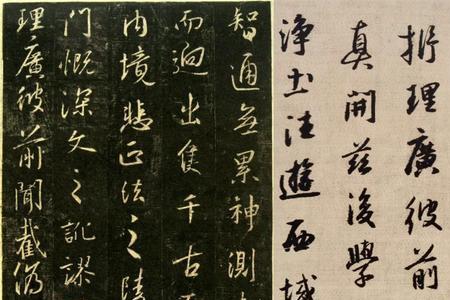 析理廣彼前
真開茲後學
淨土往遊西域
智通無累神測
而迥出隻千古
內境悲正法之陵
門慨深文之訛謬
理廣彼前聞截偽